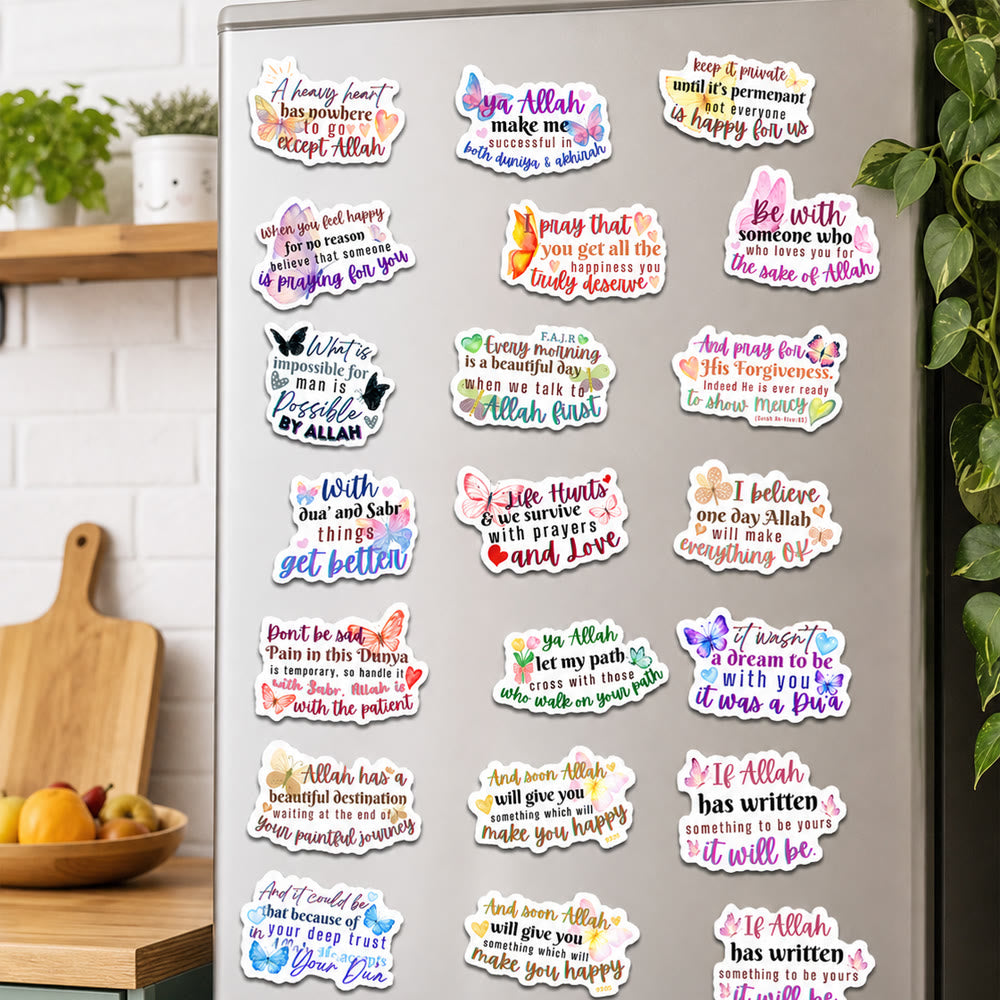 A heavy heart
has nowhere
to go
except Allah
ya Allah
make me
successful in
both duniya & akhirah
keep it private
until it's permenant
not everyone
is happy for us
When you feel happy
for no reason
believe that someone
is praying for you
I pray that
you get all the
happiness you
truly deserve
Be with
someone who
who loves you for
the sake of Allah
What is
impossible for
man is
Possible
BY ALLAH
F.A.J.R
Every morning
is a beautiful day
when we talk to
Allah first
And pray for
His Forgiveness.
Indeed He is ever ready
to show mercy
With
dua' and Sabr
things
get better
Life Hurts
& we survive
with prayers
and Love
I believe
one day Allah
will make
everything OK
Don't be sad
Pain in this Dunya
is temporary, so handle it
with Sabr, Allah is
with the patient
ya Allah
let my path
cross with those
who walk on your path
it wasn't
a dream to be
with you
it was a Du'a
Allah has a
beautiful destination
waiting at the end of
your painful journey
And soon Allah
will give you
something which will
make you happy
9305
If Allah
has written
something to be yours
it will be.
And it could be
that because of
in your deep trust
Allah accepts
Your Dua
And soon Allah
will give you
something which will
make you happy
9305
If Allah
has written
something to be yours
it will be